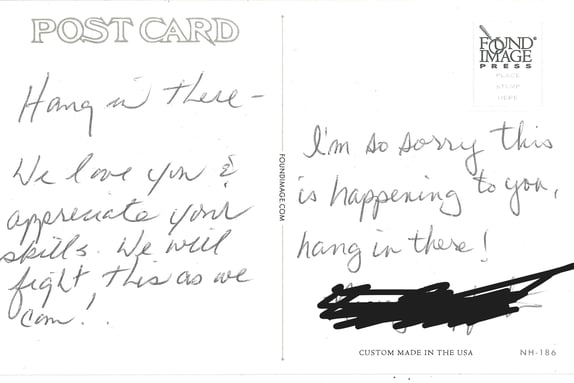 POST CARD
Hang in there -
We love you &
appreciate your
skills. We will
fight this as we
can!
FOUNDIMAGE.COM
FOUND®
IMAGE
PRESS
PLACE
STAMP
HERE
I'm so sorry this
is happening to you,
hang in there!
CUSTOM MADE IN THE USA
NH-186